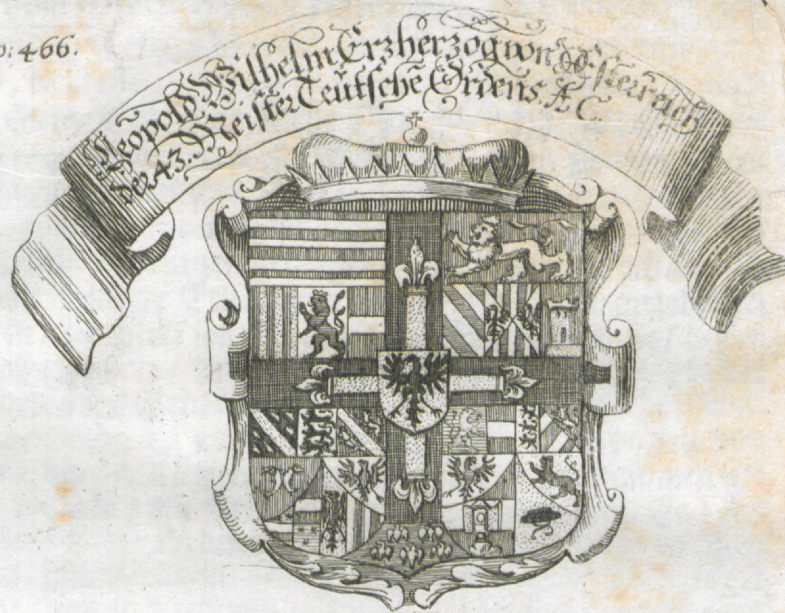 p: 466.
Leopold Wilhelm Erzherzog von Österreich
der 43. Meister Teutsche Ordens. Æ C.